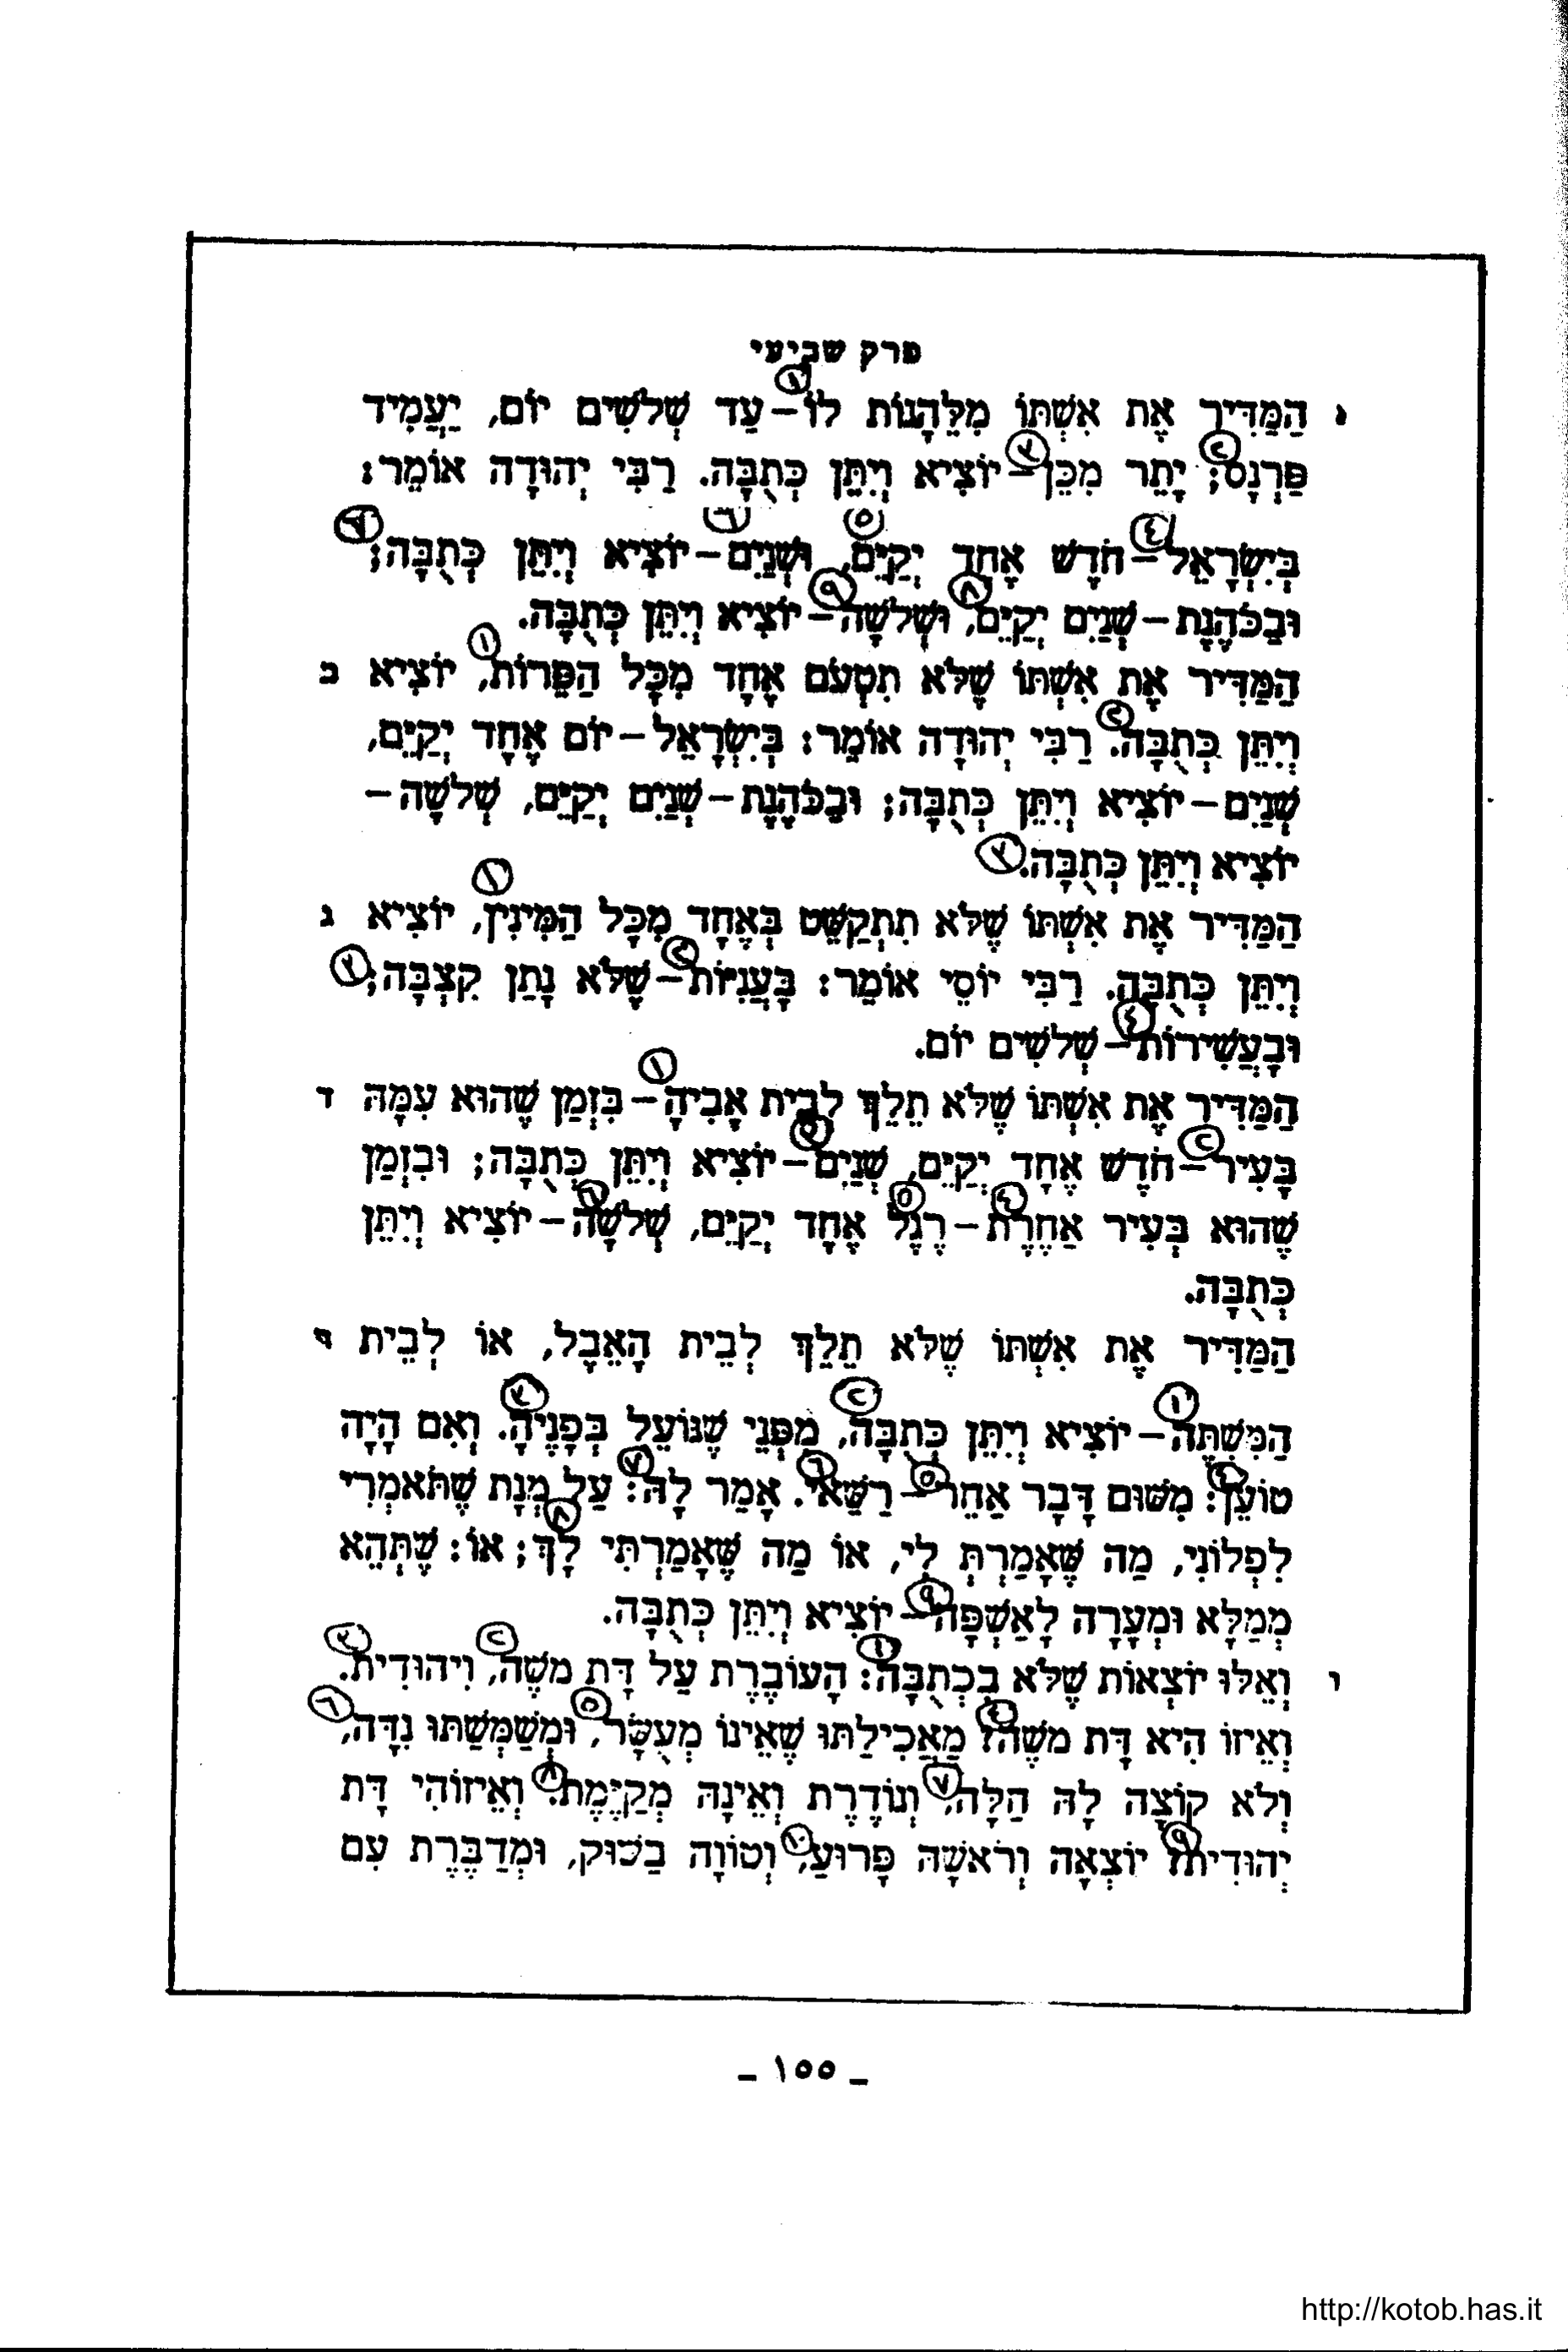 פרק שביעי
א הַמַּדִּיר אֶת אִשְׁתּוֹ מִלֵּהָנוֹת לוֹ – עַד שְׁלֹשִׁים יוֹם, יַעֲמִיד
פַּרְנָס; יָתֵר מִכֵּן – יוֹצִיא וְיִתֵּן כְּתֻבָּה. רַבִּי יְהוּדָה אוֹמֵר:
בְּיִשְׂרָאֵל – חֹדֶשׁ אֶחָד יְקַיֵּם, וּשְׁנַיִם – יוֹצִיא וְיִתֵּן כְּתֻבָּה;
וּבַכֹּהֶנֶת – שְׁנַיִם יְקַיֵּם, וּשְׁלֹשָׁה – יוֹצִיא וְיִתֵּן כְּתֻבָּה.
ב הַמַּדִּיר אֶת אִשְׁתּוֹ שֶׁלֹּא תִטְעֹם אֶחָד מִכָּל הַפֵּרוֹת, יוֹצִיא
וְיִתֵּן כְּתֻבָּה. רַבִּי יְהוּדָה אוֹמֵר: בְּיִשְׂרָאֵל – יוֹם אֶחָד יְקַיֵּם,
שְׁנַיִם – יוֹצִיא וְיִתֵּן כְּתֻבָּה; וּבַכֹּהֶנֶת – שְׁנַיִם יְקַיֵּם, שְׁלֹשָׁה –
יוֹצִיא וְיִתֵּן כְּתֻבָּה.
ג הַמַּדִּיר אֶת אִשְׁתּוֹ שֶׁלֹּא תִתְקַשֵּׁט בְּאֶחָד מִכָּל הַמִּינִין, יוֹצִיא
וְיִתֵּן כְּתֻבָּה. רַבִּי יוֹסֵי אוֹמֵר: בָּעֲנִיּוֹת – שֶׁלֹּא נָתַן קִצְבָּה;
וּבָעֲשִׁירוֹת – שְׁלֹשִׁים יוֹם.
ד הַמַּדִּיר אֶת אִשְׁתּוֹ שֶׁלֹּא תֵלֵךְ לְבֵית אָבִיהָ – בִּזְמַן שֶׁהוּא עִמָּהּ
בָּעִיר – חֹדֶשׁ אֶחָד יְקַיֵּם, שְׁנַיִם – יוֹצִיא וְיִתֵּן כְּתֻבָּה; וּבִזְמַן
שֶׁהוּא בְּעִיר אַחֶרֶת – רֶגֶל אֶחָד יְקַיֵּם, שְׁלֹשָׁה – יוֹצִיא וְיִתֵּן
כְּתֻבָּה.
ה הַמַּדִּיר אֶת אִשְׁתּוֹ שֶׁלֹּא תֵלֵךְ לְבֵית הָאֵבֶל, אוֹ לְבֵית
הַמִּשְׁתֶּה – יוֹצִיא וְיִתֵּן כְּתֻבָּה, מִפְּנֵי שֶׁנּוֹעֵל בְּפָנֶיהָ. וְאִם הָיָה
טוֹעֵן: מִשּׁוּם דָּבָר אַחֵר – רַשַּׁאי. אָמַר לָהּ: עַל מְנָת שֶׁתֹּאמְרִי
לִפְלוֹנִי, מַה שֶּׁאָמַרְתְּ לִי, אוֹ מַה שֶּׁאָמַרְתִּי לָךְ; אוֹ: שֶׁתְּהֵא
מְמַלָּא וּמְעָרָה לָאַשְׁפָּה – יוֹצִיא וְיִתֵּן כְּתֻבָּה.
ו וְאֵלּוּ יוֹצְאוֹת שֶׁלֹּא בִכְתֻבָּה: הָעוֹבֶרֶת עַל דָּת משֶׁה, וִיהוּדִית.
וְאֵיזוֹ הִיא דָּת משֶׁה? מַאֲכִילַתּוּ שֶׁאֵינוֹ מְעֻשָּׂר, וּמְשַׁמְּשַׁתּוּ נִדָּה,
וְלֹא קוֹצָה לָהּ חַלָּה, וְנוֹדֶרֶת וְאֵינָהּ מְקַיֶּמֶת. וְאֵיזוֹהִי דָּת
יְהוּדִית? יוֹצְאָה וְרֹאשָׁהּ פָּרוּעַ, וְטוֹוָה בַשּׁוּק, וּמְדַבֶּרֶת עִם
– ١٥٥ –
http://kotob.has.it